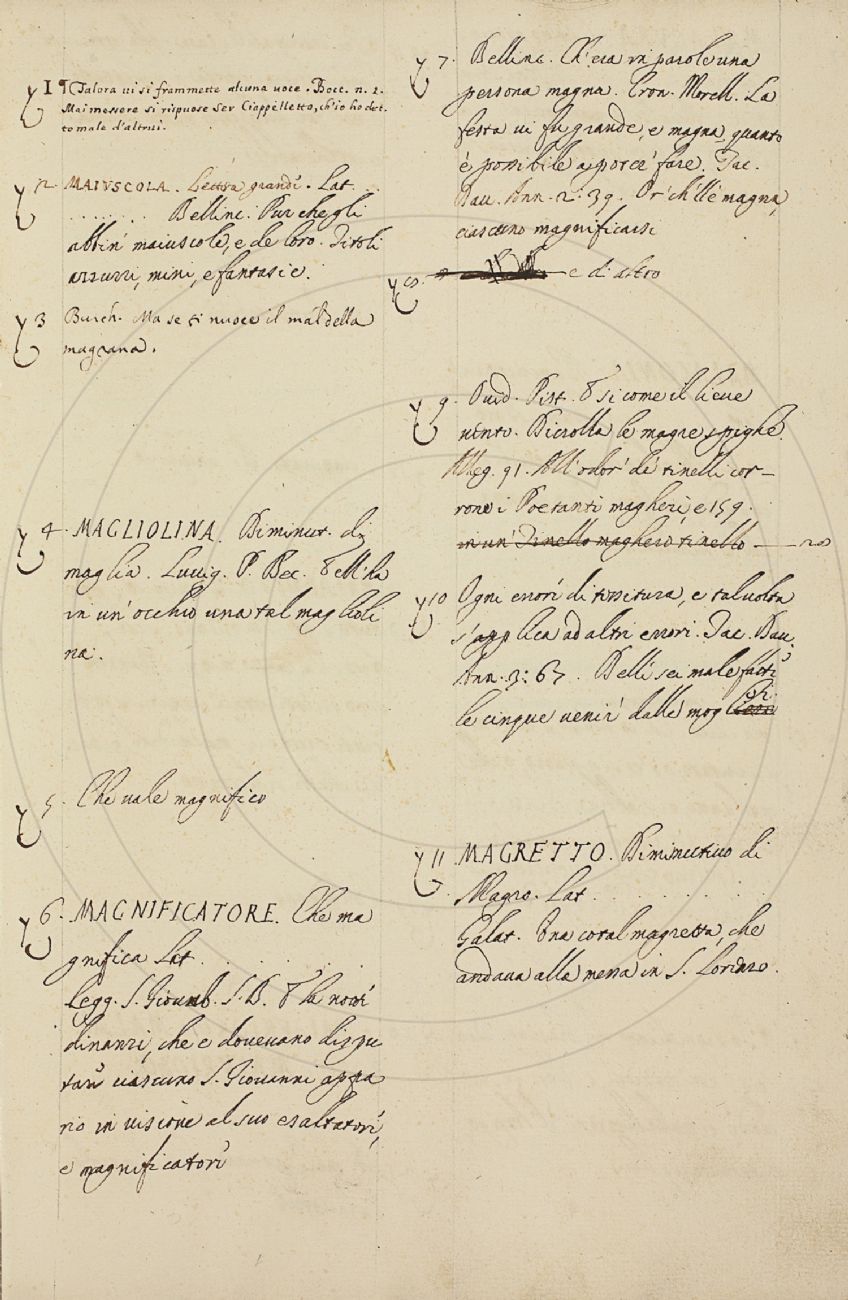 1 ¶ Talora vi si frammette alcuna voce. Bocc. n. 1.
Mai messere si rispuose Ser Ciappelletto, ch'io ho det-
to male d'altrui.
2. MAIVSCOLA. Lettera grande. Lat. . .
. . . . . . . . Bellinc. Pur che gli
abbin' maiuscole, e de loro. Titoli
azzurri, mini, e fantasie.
3 Burch. Ma se ti nuoce il mal della
magrana.
4. MAGLIOLINA. Diminut. di
maglia. Luig. P. Bec. Ed ell'ha
in un'occhio una tal maglioli
na.
5. Che vale magnifico
6. MAGNIFICATORE. Che ma
gnifica Lat. . . . . .
Legg. S. Giovamb. S. B. E la notte
dinanzi, che e dovevano dispu
tare ciascuno S. Giovanni appa
rio in visione al suo esaltatore,
e magnificatore
7. Bellinc. Ch'era in parole una
persona magna. Cron. Morell. La
festa vi fu grande, e magna, quanto
è possibile a poter fare. Tac.
Dav. Ann. 2. 39. Or ch'll'è magna,
ciascuno magnificarsi
8. e di altro
9. Ovid. Pist. E si come il lieve
vento. Dicrolla le magre spighe.
Alleg. 91. All'odor de tinelli cor-
rono i Poetanti magheri, e 159.
in un' Tinello maghero tinello
10 Ogni errore di tessitura, e talvolta
s'applica ad altri errori. Tac. Dav.
Ann. 3: 67. Delli sei male fatti
le cinque venire dalle mogli
11 MAGRETTO. Diminutivo di
Magro. Lat . . . . . . .
Galat. Una cotal magretta, che
andava alla messa in S. Lorenzo.